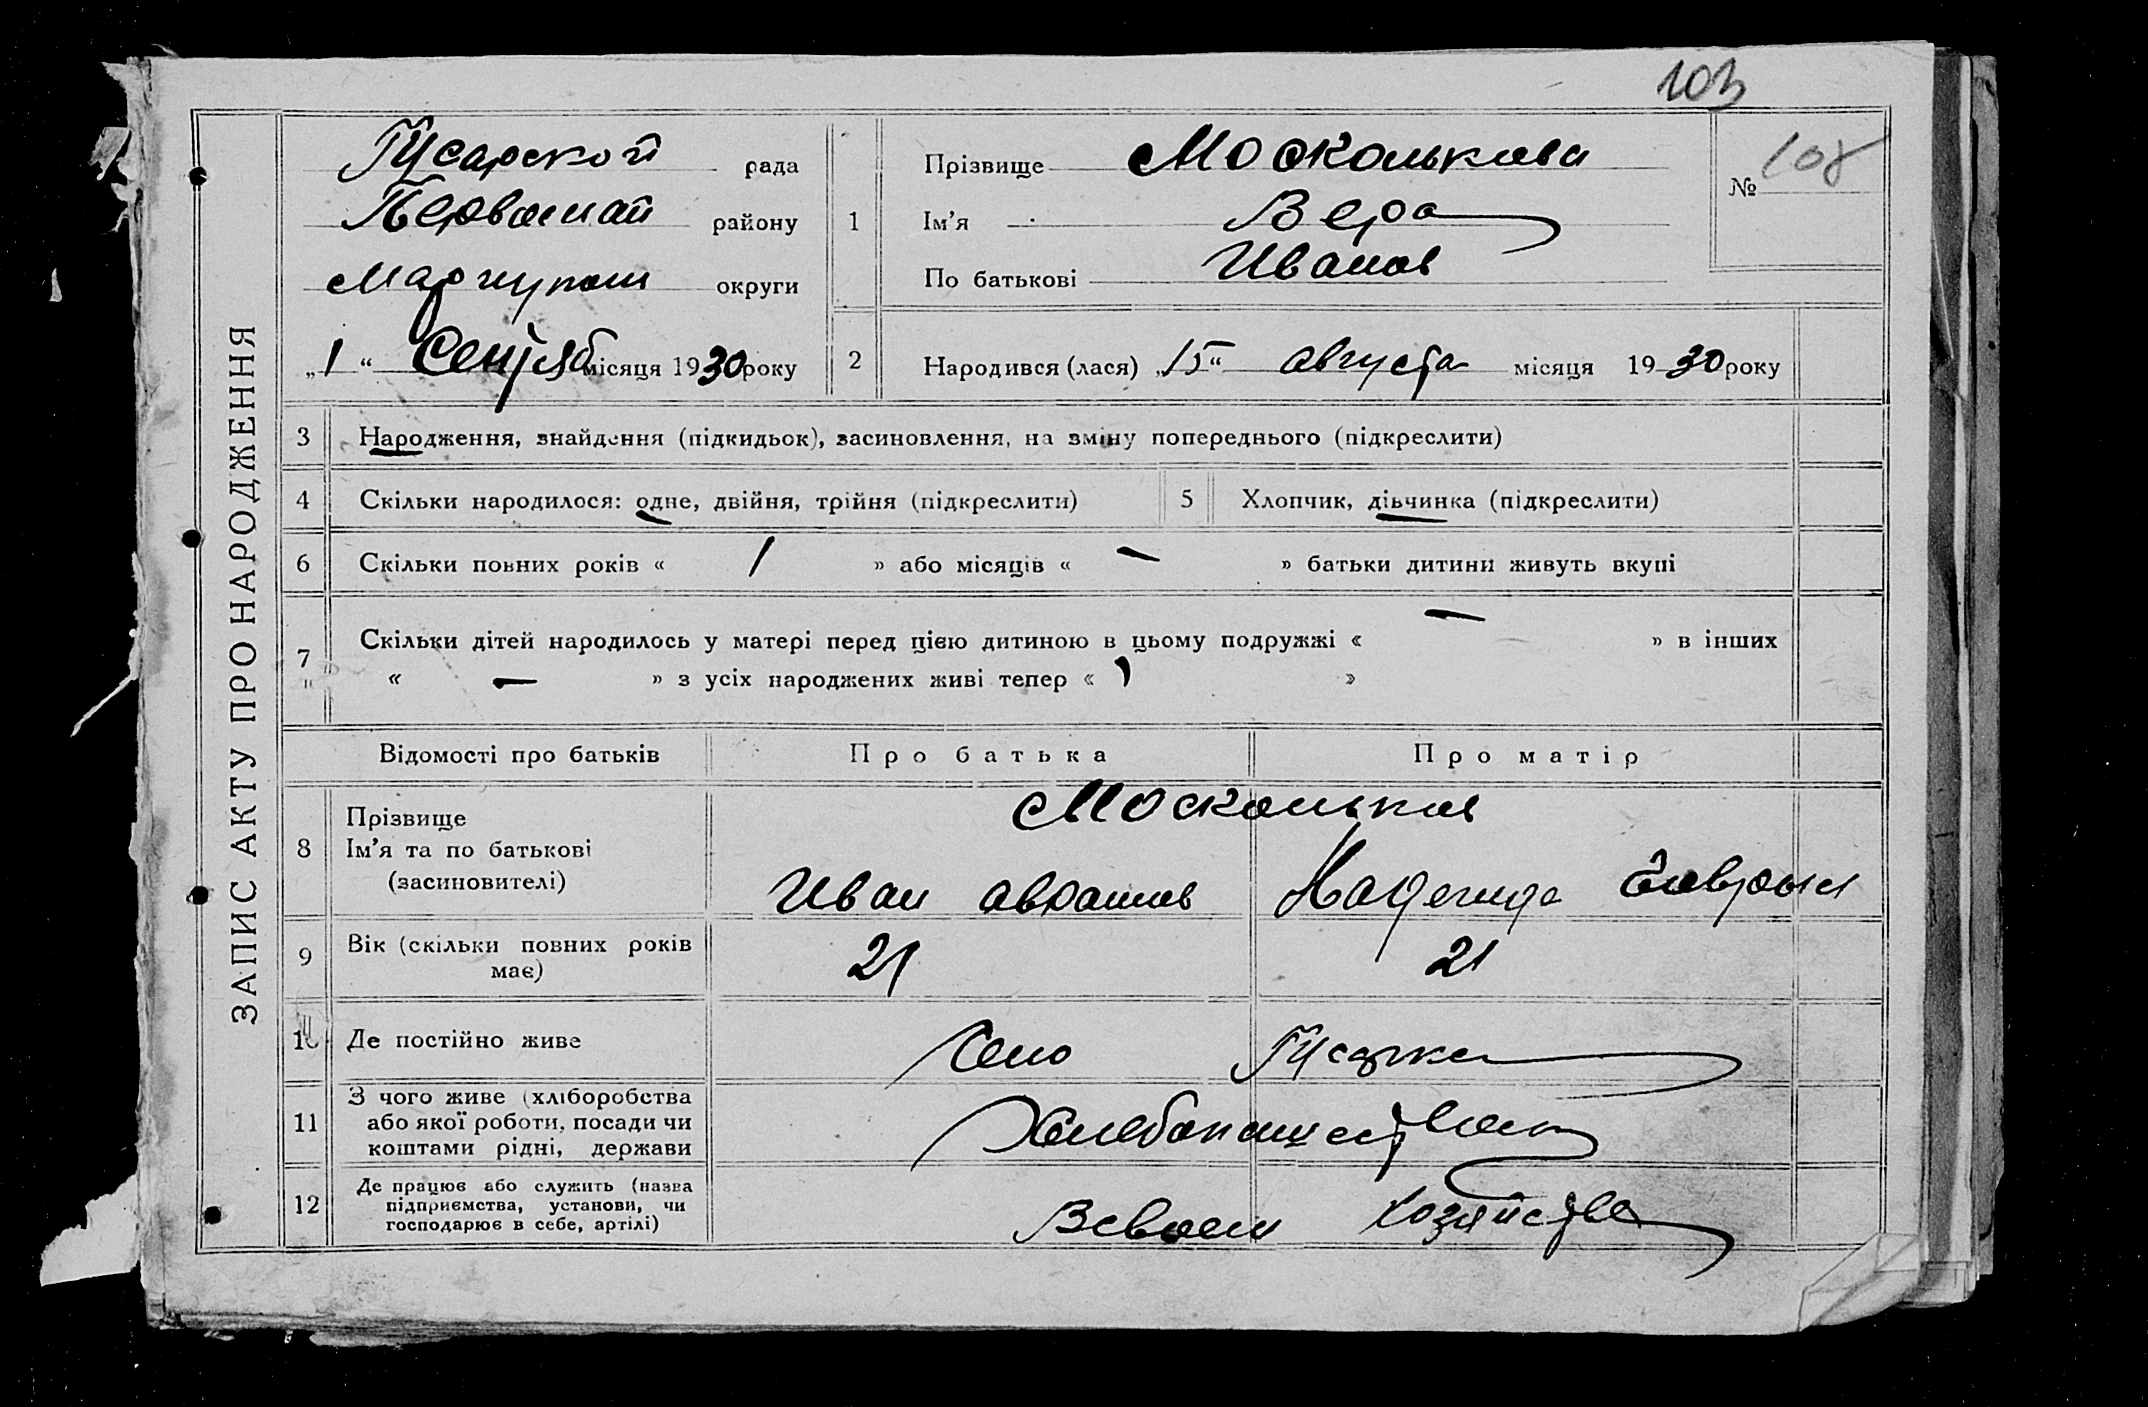 103
ЗАПИС АКТУ ПРО НАРОДЖЕННЯ
Гусарской рада
Первомай району
Мариупол округи
„1“ Сентяб місяця 1930 року
1
Прізвище Москолькова
Ім’я Вера
По батькові Иванов
№ 108
2 Народився (лася) „15“ августа місяця 1930 року
3 Народження, знайдення (підкидьок), засиновлення, на зміну попереднього (підкреслити)
4 Скільки народилося: одне, двійня, трійня (підкреслити) 5 Хлопчик, дівчинка (підкреслити)
6 Скільки повних років « 1 » або місяців « — » батьки дитини живуть вкупі
7 Скільки дітей народилось у матері перед цією дитиною в цьому подружжі « — » в інших
« — » з усіх народжених живі тепер « 1 »
Відомості про батьків Про батька Про матір
8 Прізвище Москольков
Ім’я та по батькові
(засиновителі) Иван Аврамов Надежда
9 Вік (скільки повних років
має) 21 21
10 Де постійно живе Село Гусарка
11 З чого живе (хліборобства
або якої роботи, посади чи
коштами рідні, держави Хлебопашеством
12 Де працює або служить (назва
підприємства, установи, чи
господарює в себе, артілі) В своем хозяйстве